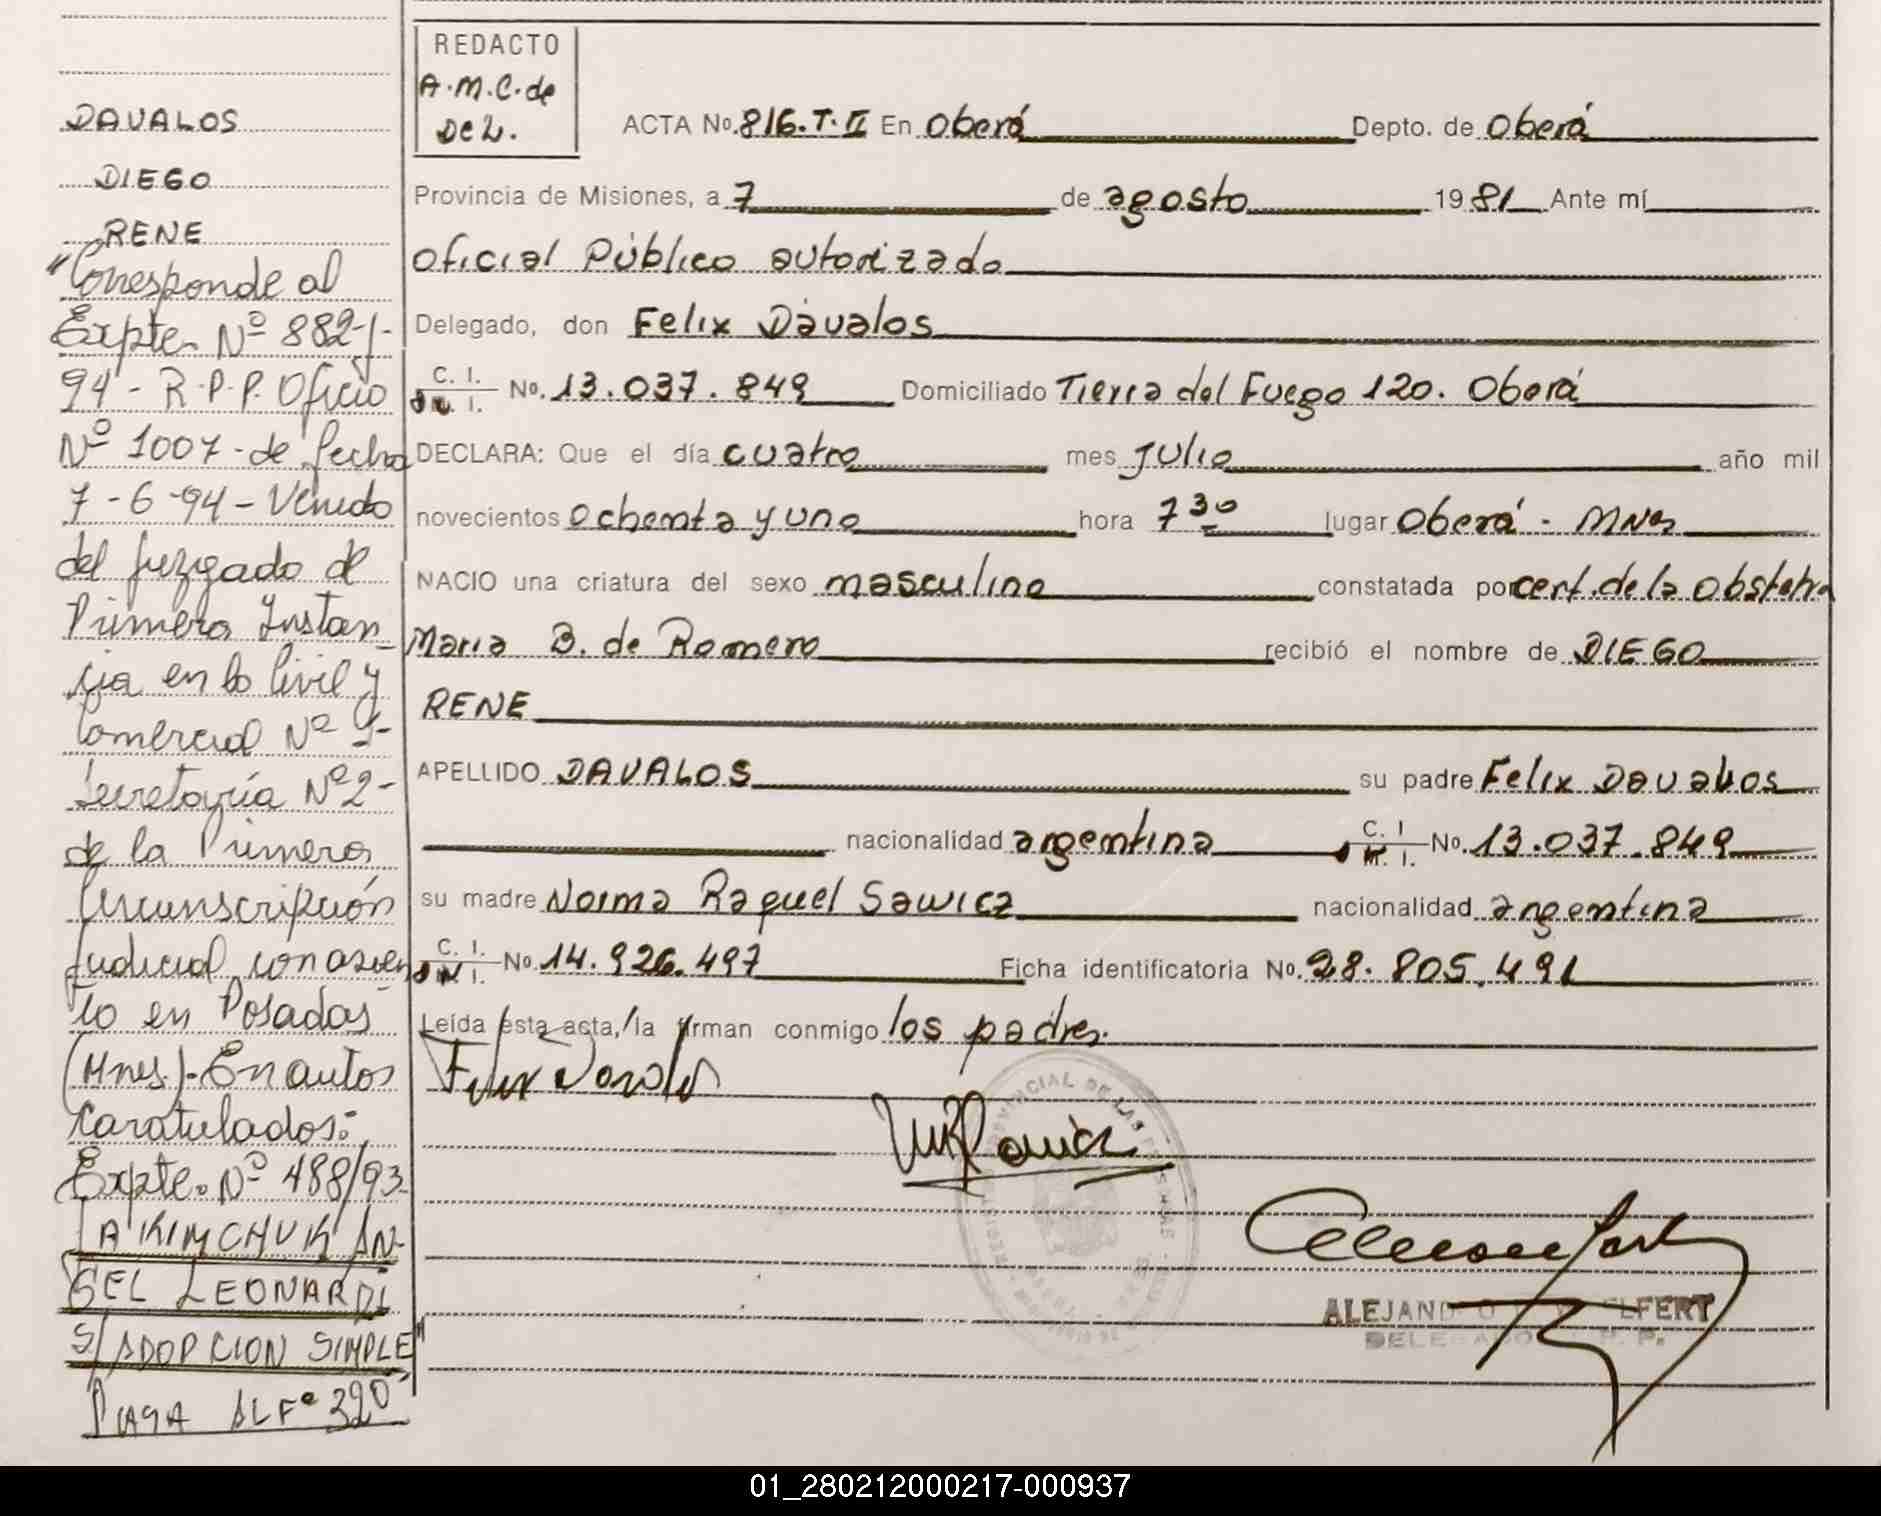 DAVALOS
DIEGO
RENE
"Corresponde al
Expte. Nº 882-J-
94 - R.P.P. Oficio
Nº 1007 - de fecha
7 - 6 - 94 - Venido
del Juzgado de
Primera Instan
cia en lo Civil y
Comercial Nº
Secretaría Nº 2 -
de la Primera
Circunscripción
Judicial con asien
to en Posadas
(Mnes.) - En autos
Caratulados:
Expte. Nº 488/93
AKIMCHUK AN-
GEL LEONARDI
S/ADOPCION SIMPLE"
PASA AL Fº 320
REDACTO
A.M.C. de
De L.
ACTA No. 816. T. II En Oberá Depto. de Oberá
Provincia de Misiones, a 7 de agosto 1981 Ante mí
Oficial Público autorizado
Delegado, don Felix Dávalos
C. I. No. 13.037.849 Domiciliado Tierra del Fuego 120. Oberá
DECLARA: Que el día cuatro mes Julio año mil
novecientos ochenta y uno hora 7 30 lugar Oberá - Mnes
NACIO una criatura del sexo masculino constatada por cert. de la obstetra
Maria B. de Romero recibió el nombre de DIEGO
RENE
APELLIDO DAVALOS su padre Felix Davalos
nacionalidad argentina C. I. No. 13.037.849
su madre Norma Raquel Sawicz nacionalidad argentina
C. I. No. 14.926.497 Ficha identificatoria No. 28.805.491
Leída esta acta, la firman conmigo los padres.
Felix Davalos
DELEGADO R. P. P.
01_280212000217-000937